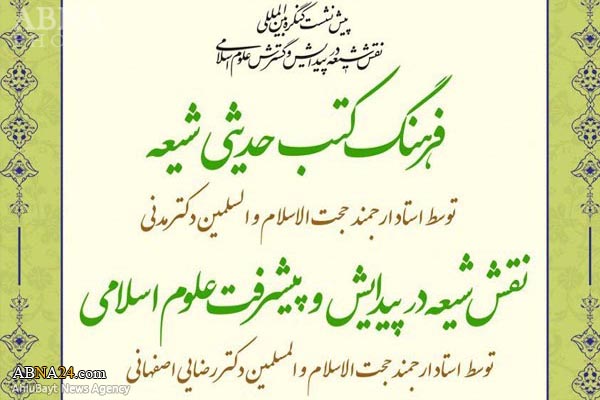 پیش نشست کنگره بین المللی
نقش شیعه در پیدایش و گسترش علوم اسلامی
فرهنگ کتب حدیثی شیعه
توسط استاد ارجمند حجت الاسلام و السلمین دکتر مدنی
نقش شیعه در پیدایش و پیشرفت علوم اسلامی
توسط استاد ارجمند حجت الاسلام و المسلمین دکتر رضایی اصفهانی
ABNA24.com
AhlulBayt News Agency